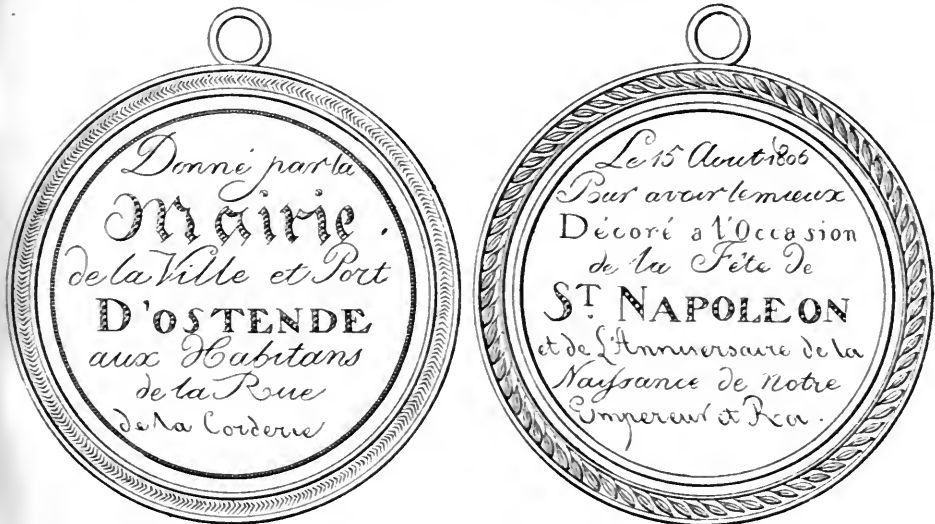 Donné par la
Mairie.
de la Ville et Port
D'OSTENDE
aux Habitans
de la Rue
de la Corderie
Le 15 Aout 1806
Pour avoir le mieux
Décoré a l'Occasion
de la Féte de
ST. NAPOLEON
et de L'Anniversaire de la
Naissance de Notre
Empereur et Roi.